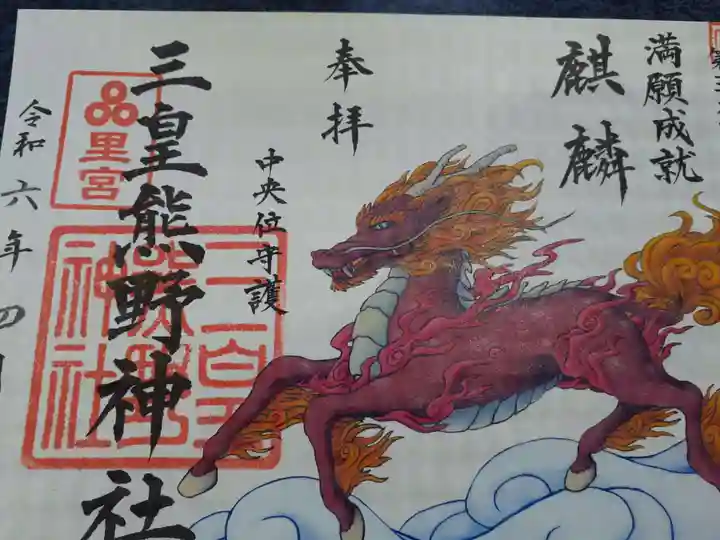 満願成就
麒麟
奉拝
中央位守護
三皇熊野神社
里宮
三皇熊野神社
令和六年四月